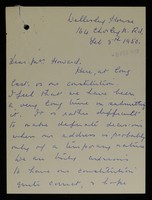 Wellesley House
Feb 3rd 1950.
Dear Mr Howard,
Here, at long
last, is our constitution.
I feel that we have been
a very long time in submitting
it. It is rather difficult
to make definite decisions
when our address is probably
only of a temporary nature
we
to have our constitution
quite correct, & hope